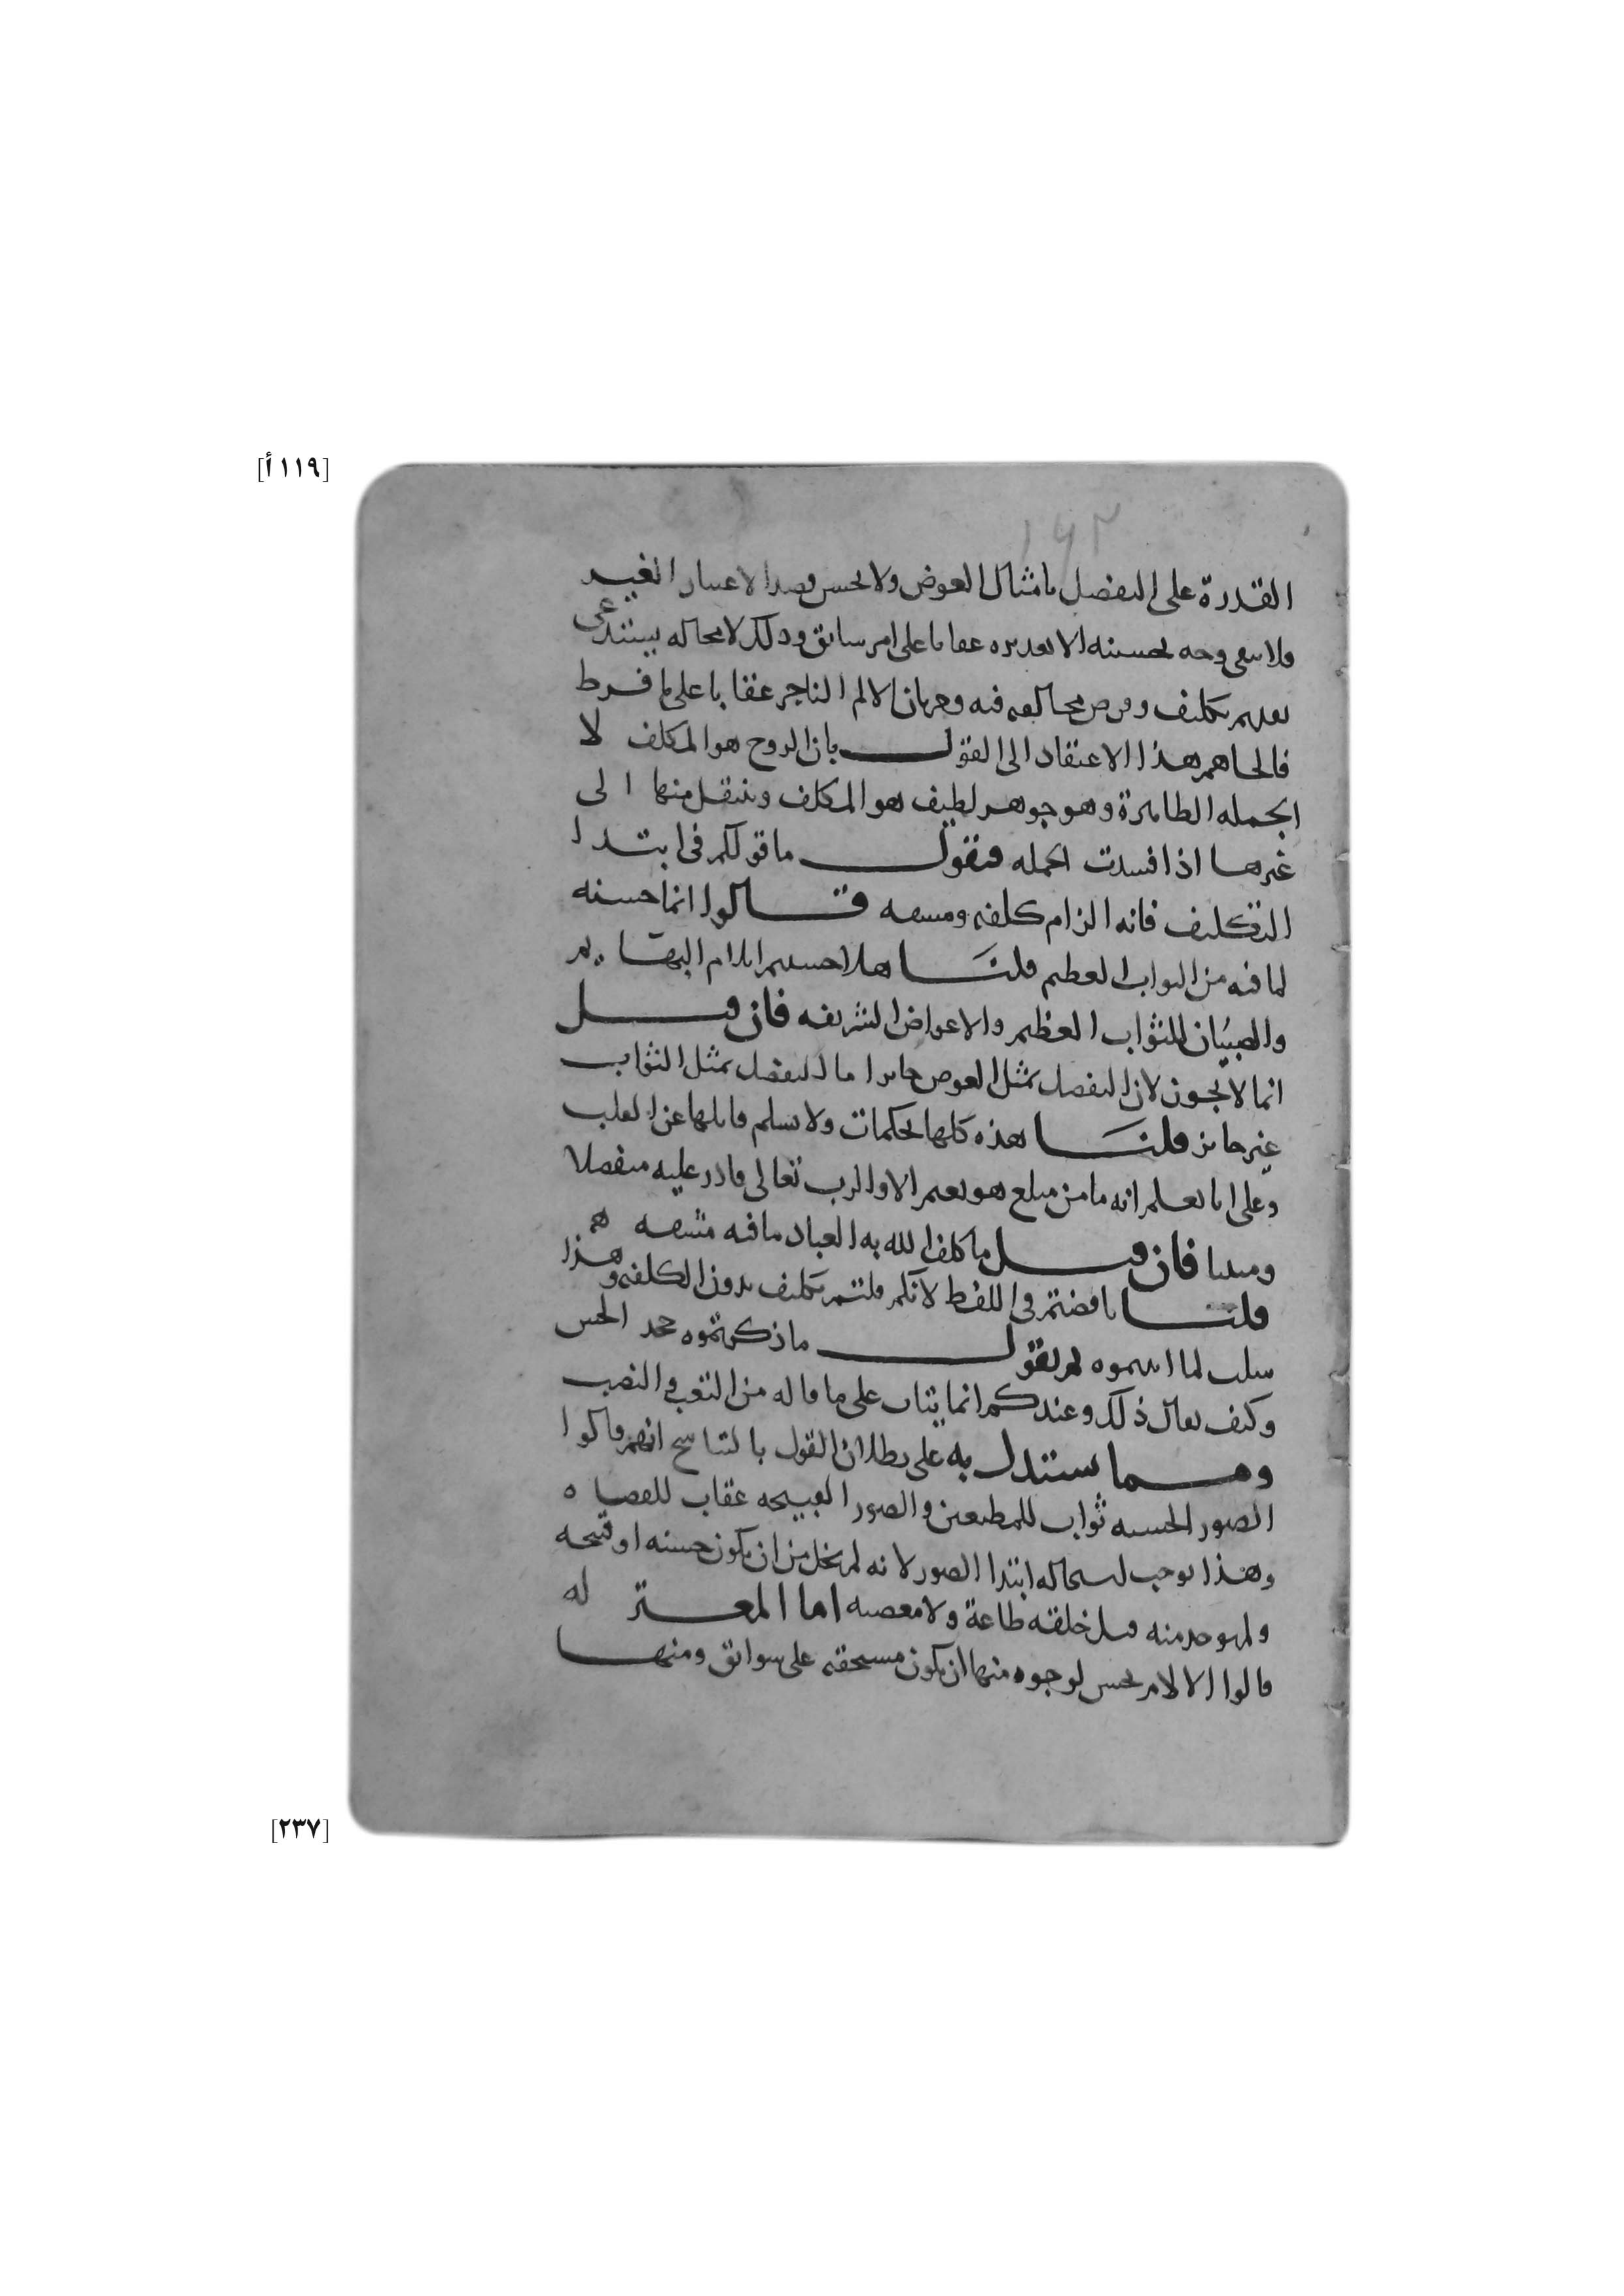 [١١٩ أ]
١٦٣
القدرة على التفضل بامثال العوض ولا يحسن قصدا لاعتبار الغير
ولا يبقى وجه لحسنه الا تقديره عقابا على امر سابق وذلك لا محاله يستدعى
تقديم تكليف وفرض مخالفه فيه وجريان الالم الناجر عقابا على ما فرط
فالجاهم هذا الاعتقاد الى القول بان الروح هو المكلف لا
الجمله الظاهرة وهو جوهر لطيف هو المكلف وينتقل منها الى
غيرها اذا فسدت الجمله فنقول ما قولكم فى ابتدا
التكليف فانه الزام كلفه ومشقه قالوا انما حسنه
لما فيه من الثواب العظيم قلنا هلا حسنتم ايلام البهايم
والصبيان للثواب العظيم والاعواض الشريفه فان قيل
انما لا يجوز لان التفضل بمثل العوض جايز اما التفضل بمثل الثواب
غير جايز قلنا هذه كلها تحكمات ولا يسلم قايلها عن القلب
وعلى انا نعلم انه ما من مبلغ هو نعيم الا والرب تعالى قادر عليه متفضلا
فان قيل ما كلف الله به العباد ما فيه مشقه
قلنا ناقضتم فى اللفظ لانكم قلتم تكليف بدون الكلفه وهذا
سلب لما اثبتموه ثم نقول ما ذكرتموه جحد الحس
وكيف يقال ذلك وعندكم انما يثاب على ما قاله من التعب والنصب
ومما يستدل به على بطلان القول بالتناسخ انهم قالوا
الصور الحسنه ثواب للمطيعين والصور القبيحه عقاب للعصاه
وهذا يوجب استحاله ابتدا الصور لانه لم يخل من ان يكون حسنه او قبيحه
ولم يوجد منه قبل خلقه طاعة ولا معصيه اما المعتزله
قالوا الالام يحسن لوجوه منها ان يكون مستحقه على سوابق ومنها
[٢٣٧]